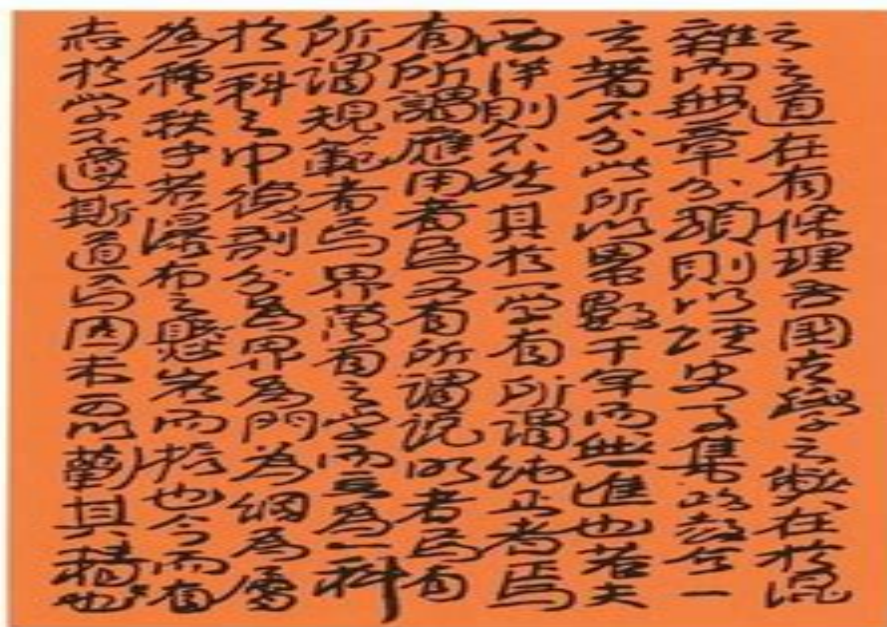 之之道在有條理吾國古學之弊在於混
雜而無章分類則以經史子集政教合一
玄著不分此所以累數千年而無進也若夫
西洋則不然其於一學有所謂純正者焉
有所謂應用者焉又有所謂說明者焉有
所謂規範者焉界萬有之學而立為一科
於一科之中復剖分為界為門為綱為屬
為種秩乎若瀑布之懸岩而也今而有
志於學不遵斯道焉固未可以蘄其也